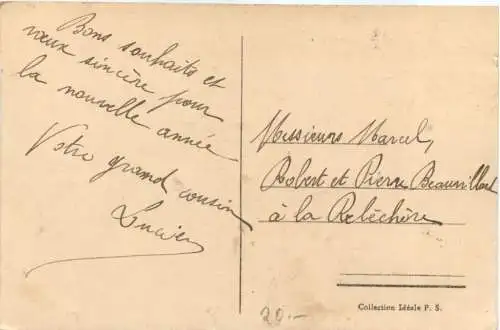 Bons souhaits et
vœux sincère pour
la nouvelle année
Votre grand cousin
Lucien
Messieurs Marcel,
Robert et Pierre
à la Rebéchère
Collection Idéale P. S.
20.-